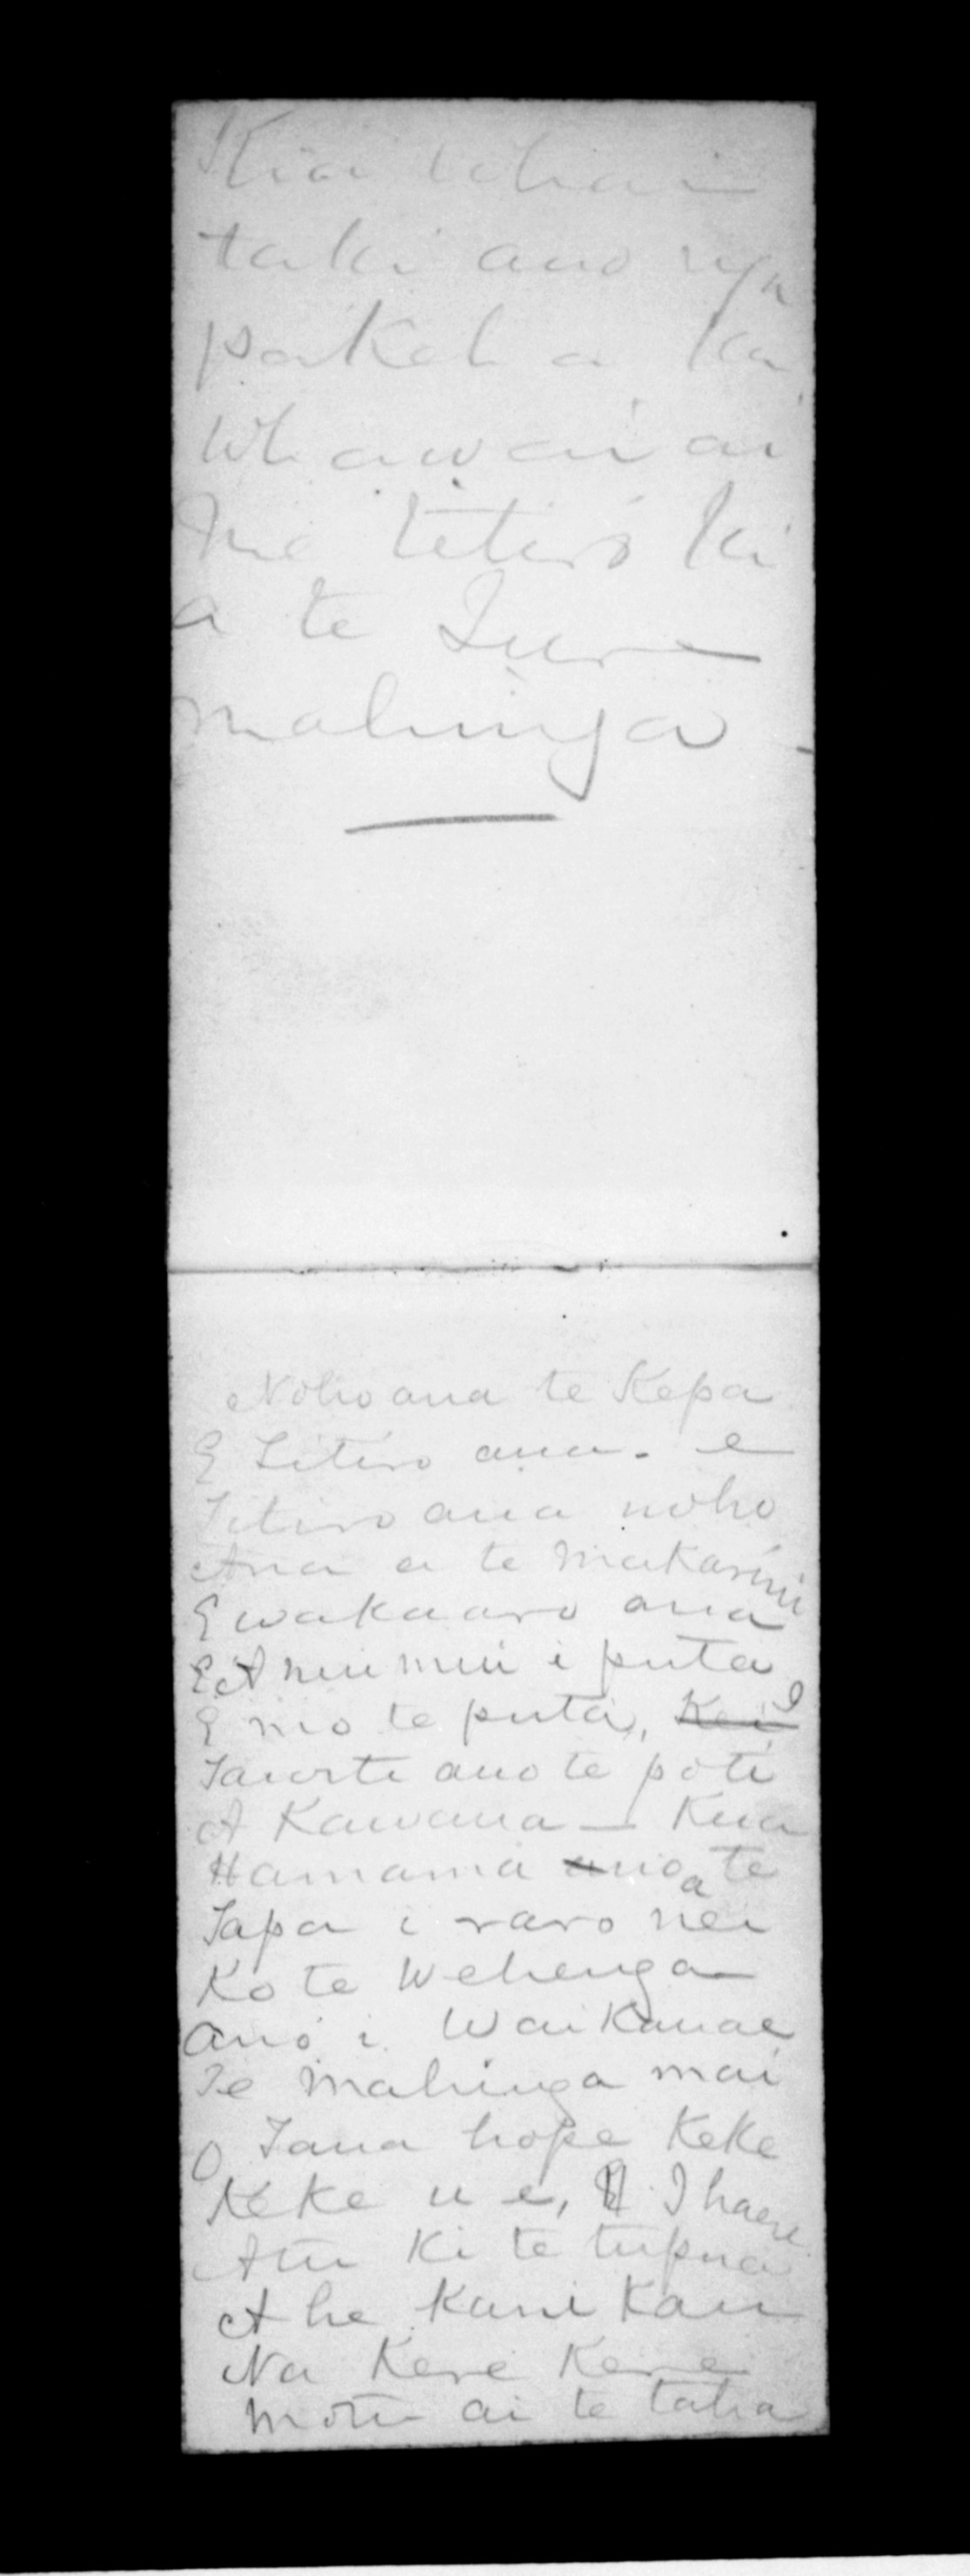 taki ano nga
pakeha ka
whawai ai
me titiro ki
a te Ture
mahinga -
Noho ana te Kepa
E Titiro ana. e
Titiro ana noho
Ana a te Makarini
E wakaaro ana
E A nui nui i puta
E mo te puta, Kei I
ano te poti
A Kawana - Kua
Hamama ana te
Tapa i raro nei
Ko te Wehenga
ano i Waikanae
Te Mahinga mai
O Taua hope Keke
Keke u e, I haere
Atu ki te tupua
A he Kani Kau
Na Kere Kere
motu ai te taha